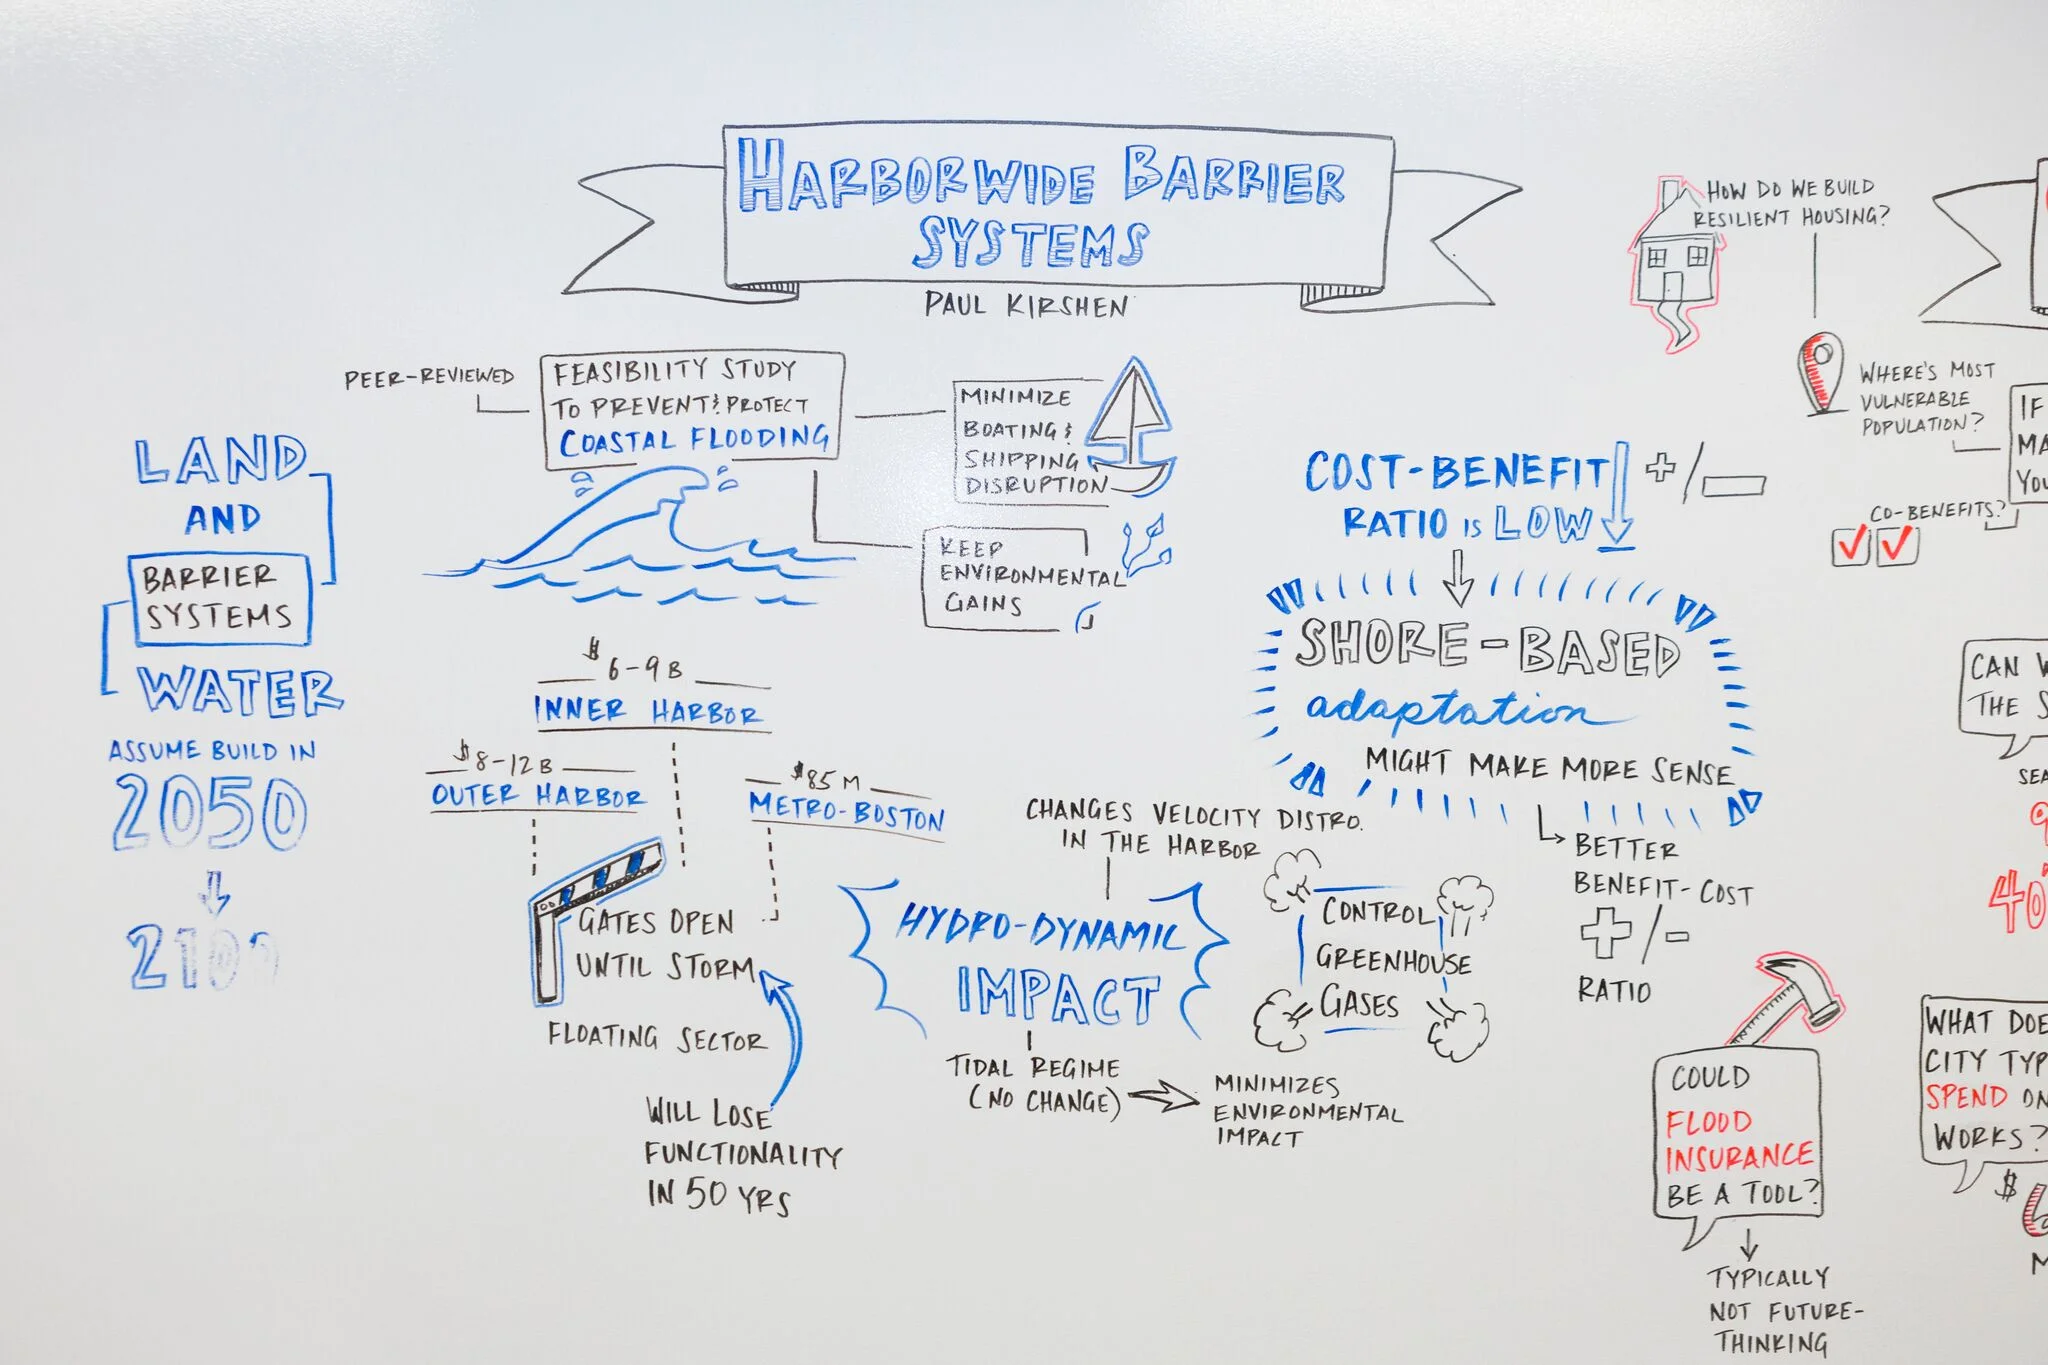 HARBORWIDE BARRIER
SYSTEMS
PAUL KIRSHEN
PEER-REVIEWED
FEASIBILITY STUDY
TO PREVENT & PROTECT
COASTAL FLOODING
MINIMIZE
BOATING &
SHIPPING
DISRUPTION
KEEP
ENVIRONMENTAL
GAINS
LAND
AND
BARRIER
SYSTEMS
WATER
ASSUME BUILD IN
2050
2100
$6-9B
INNER HARBOR
$8-12B
OUTER HARBOR
$85M
METRO-BOSTON
GATES OPEN
UNTIL STORM
FLOATING SECTOR
WILL LOSE
FUNCTIONALITY
IN 50 YRS
CHANGES VELOCITY DISTRO.
IN THE HARBOR
HYDRO-DYNAMIC
IMPACT
TIDAL REGIME
(NO CHANGE)
MINIMIZES
ENVIRONMENTAL
IMPACT
CONTROL
GREENHOUSE
GASES
COST-BENEFIT
RATIO IS LOW
+/-
SHORE-BASED
adaptation
MIGHT MAKE MORE SENSE
BETTER
BENEFIT-COST
+/-
RATIO
HOW DO WE BUILD
RESILIENT HOUSING?
WHERE'S MOST
VULNERABLE
POPULATION?
IF
MA
YOU
CO-BENEFITS?
CAN W
THE S
SEA
9
40
COULD
FLOOD
INSURANCE
BE A TOOL?
TYPICALLY
NOT FUTURE-
THINKING
WHAT DOE
CITY TYP
SPEND ON
WORKS?
$